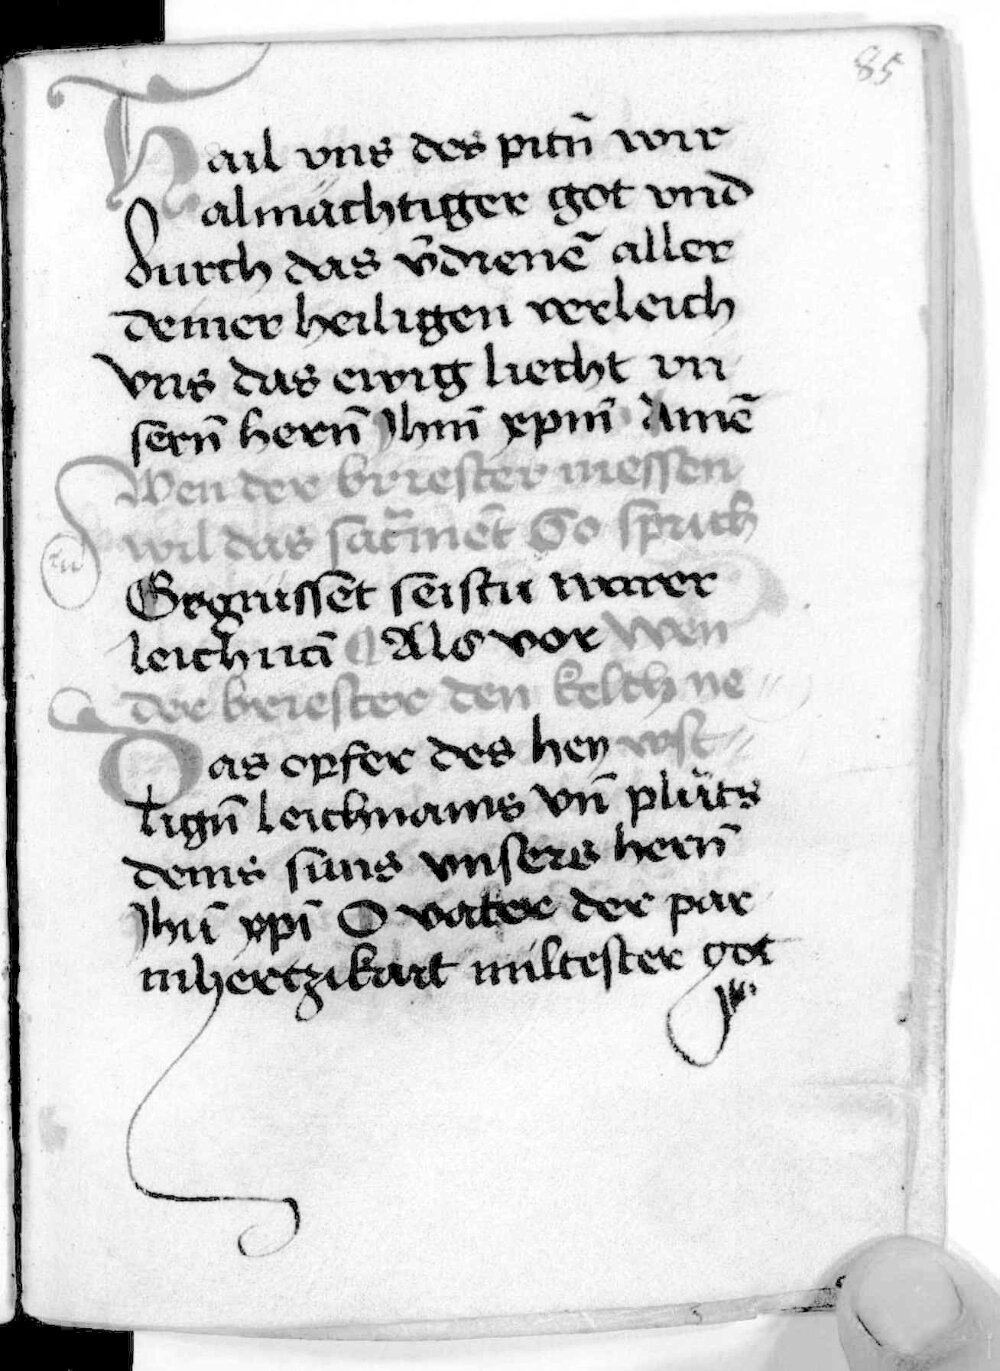 85
Hail vns des pitñ wir
almächtiger got vnd
durch das v̄dienē aller
deiner heiligen verleich
vns das ewig liecht vn
sern̄ hern̄ Jhm̄ xpm̄ Amē
Wen der briester niessen
wil das sac̄mēt So sprich
Gegrüssēt seistu warer
leichnā Als vor Wen
der briester den kelch ne
Das opfer des hey
wst
ligñ leichnams vn̄ plüts
deins suns vnsers hern̄
Jhū xpī O vater der par
mhertzikait miltester got